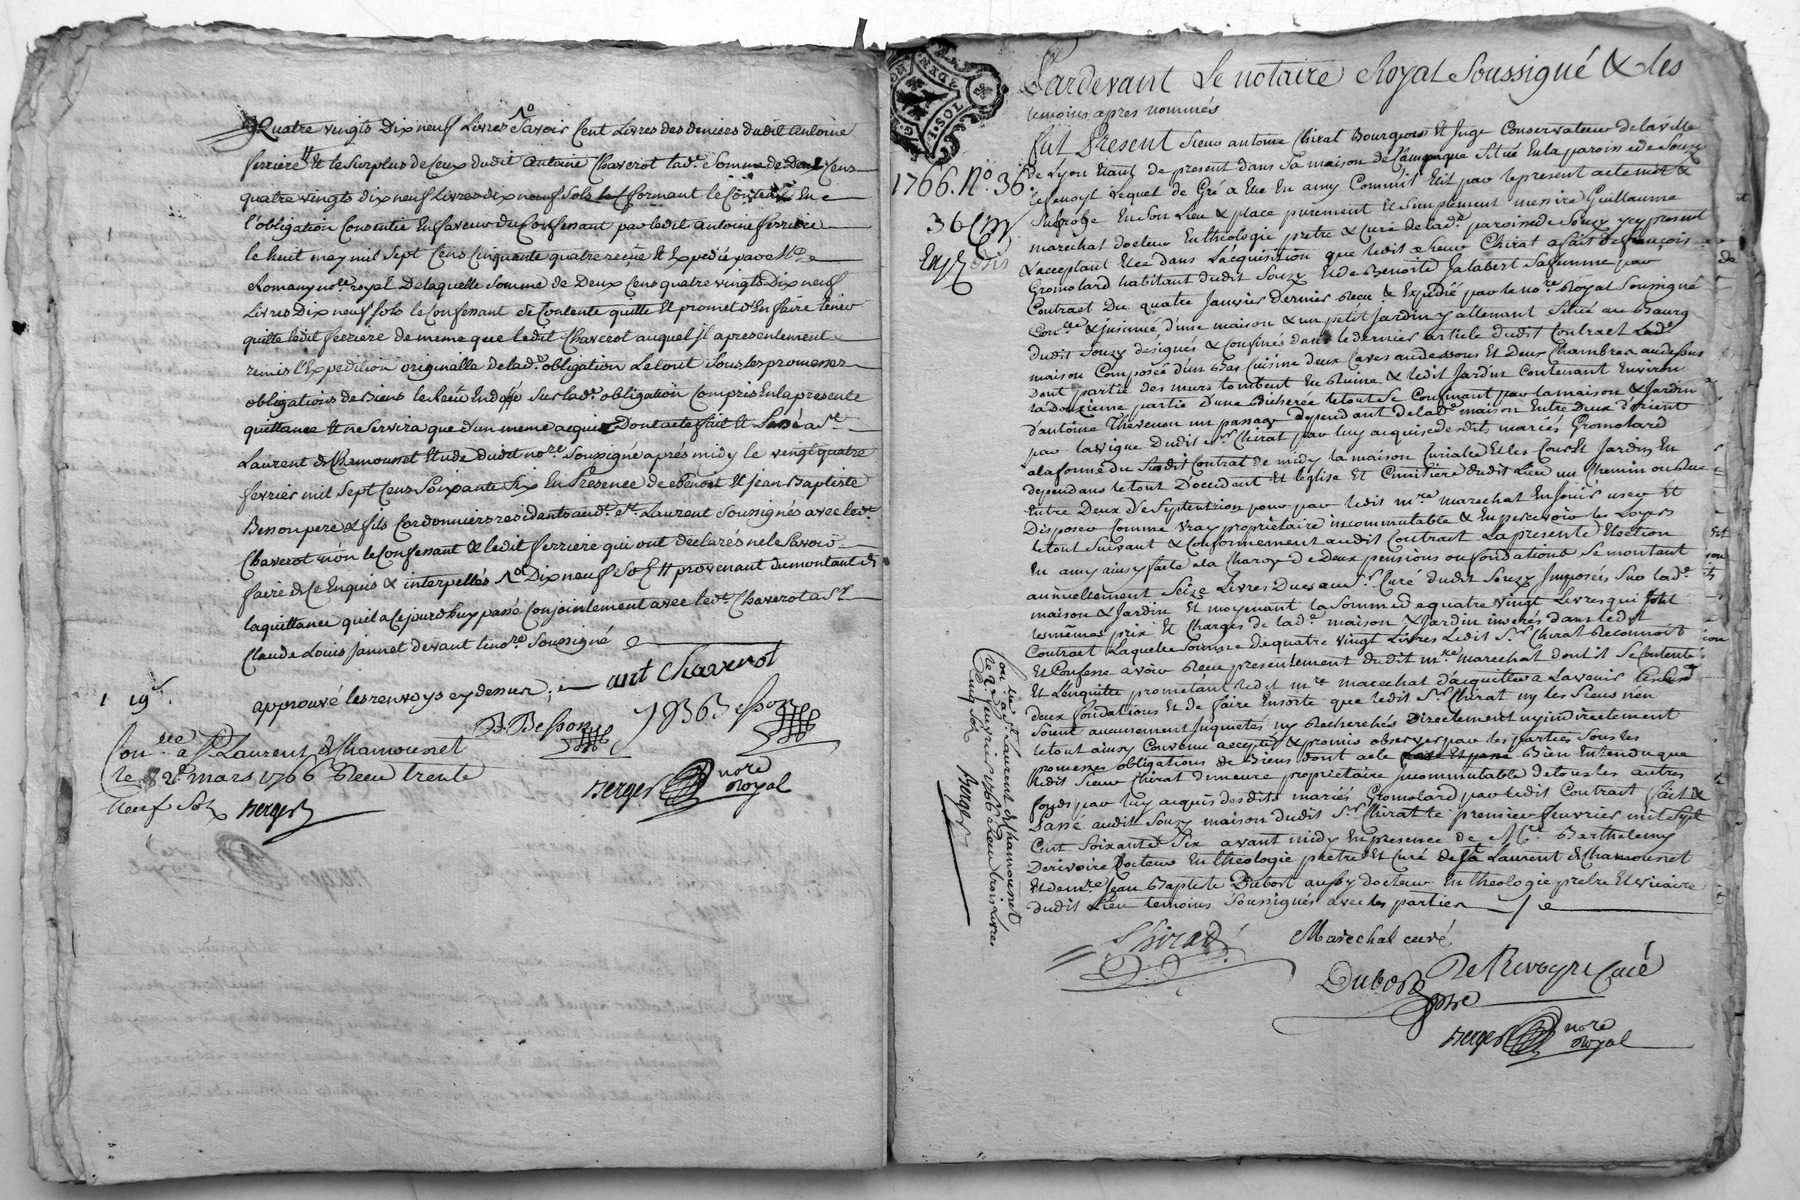 Quatre vingts Dix neuf Livres Savoir Cent Livres des deniers dudit Antoine
ferriere Et le surplus de Ceux dudit Antoine Chaverot lad.e Somme de Deux Cens
quatre vingts dix neuf Livres dix neuf sols formant le Contenu En
l'obligation Consentie En faveur du Confessant par ledit antoine ferriere
le huit may mil Sept Cens Cinquante quatre reçue Et Expediée par M.e
Romany no.re royal De laquelle somme de Deux Cens quatre vingts Dix neuf
Livres Dix neuf sols le Confessant se Contente quitte Et promet d'En faire tenir
quitte ledit ferriere de meme que ledit Chaverot auquel il a presentement
remis l'Expedition originalle de lad.e obligation Le tout sous les promesses
obligations de Biens le Receu Endossé Sur lad.e obligation Compris En la presente
quittance Et ne Servira que d'un meme acquit Dont acte fait Et Passé a S.t
Laurent de Chamousset Etude dudit no.re Soussigné après midy le vingt quatre
fevrier mil Sept Cens Soixante Six En Presence de Benoit Et jean Baptiste
Besson pere & fils Cordonniers residents aud.t S.t Laurent Soussignés avec led.t
Chaverot non le Confessant & ledit ferriere qui ont declarés ne le Savoir
faire de Ce Enquis & interpellés Dix neuf sols provenant du montant de
la quittance qu'il a Cejourd'huy passé Conjointement avec led.t Chaverot a S.r
Claude Louis Jannet devant le no.re Soussigné
approuvé les renvoys cy dessus
ant Chaverot
B Besson
J B Besson
1 19
Con.llé a S.t Laurent de Chamousset
le 8 mars 1766 Receu trente
neuf sols Berger
Berger no.re Royal
TOSI
1766. N.o 36.
Pardevant Le notaire Royal Soussigné & les
temoins apres nommés
fut Present Sieur antoine Chirat Bourgeois Et Juge Conservateur de la ville
de Lyon Etant de present dans Sa maison de Campagne Située En la paroisse de Souzy
lequel de Gré a Elu En amy Commis Et par le present acte met &
Subroge En Son Lieu & place purement Et Simplement messire Guillaume
marechal docteur En theologie pretre & Curé de lad.e paroisse de Souzy icy present
& acceptant Elu dans L'acquisition que ledit Sieur Chirat a fait de françois
Gromolard habitant dudit Souzy Et de Benoite Jalabert Sa femme par
Contract Du quatre Janvier dernier Receu & Expedié par le no.re Royal Soussigné
Con.llé & insinué d'une maison & un petit Jardin y attenant Situé au Bourg
dudit Souzy désignés & Confinés dans le dernier article dudit Contract Lad.e
maison Composée d'un Bas Cuisine deux Caves au dessous Et Deux Chambres au dessus
dont partie des murs tombent En Ruine & ledit Jardin Contenant Environ
la douzieme partie d'une Bicherée le tout Se Confinant par la maison & Jardin
d'antoine Thevenon un passage dependant de lad.e maison Entre Deux d'orient
par la vigne dudit S.r Chirat par luy acquise desdits mariés Gromolard
a la forme du Susdit Contrat de midy la maison Curiale Et les Cour & Jardin En
dependans le tout D'occident Et l'Eglise Et Cimetiere dudit Lieu un Chemin ou Rue
Entre Deux de Septentrion pour par ledit m.re marechal En jouir user Et
Disposer Comme vray proprietaire incommutable & En percevoir les Loyers
le tout Suivant & Conformement audit Contract La presente Election
En amy ainsy faite a la Charge de Deux pensions ou fondations Se montant
annuellement Seize Livres Dues au S.r Curé dudit Souzy Imposées Sur lad.e
maison & Jardin Et moyenant la Somme de quatre vingt Livres qui sont
les mêmes prix Et Charges de lad.e maison & Jardin inserés dans ledit
Contract Laquelle Somme de quatre vingt Livres Ledit S.r Chirat Reconnoit
Et Confesse avoir Receu presentement dudit m.re marechal dont il Se Contente
Et L'enquitte prometant Ledit m.re marechal d'acquitter a L'avenir lesd.
deux fondations Et de faire Ensorte que ledit S.r Chirat ny les Siens n'en
Soient aucunement Inquietés ny Recherchés Directement ny indirectement
le tout ainsy Convenu accepté & promis observer par les parties Sous les
promesses obligations de Biens dont acte Bien Entendu que
ledit Sieur Chirat demeure proprietaire Incommutable de tous les autres
fonds par luy acquis desdits mariés Gromolard par ledit Contract fait &
Passé audit Souzy maison dudit S.r Chirat le premier feuvrier mil Sept
Cent Soixante Six avant midy En presence de M.re Barthelemy
Derivoire Docteur En theologie pretre Et Curé de S.t Laurent de Chamousset
Et de m.re Jean Baptiste Dubost aussy docteur En theologie pretre Et vicaire
dudit Lieu temoins Soussignés avec les parties
Con.llé a S.t Laurent de Chamousset
feuvrier 1766 Receu trois Livres
Cinq sols Berger
Chirat
Marechal curé
Dubost ptre
De Rivoyre Curé
Berger no.re Royal